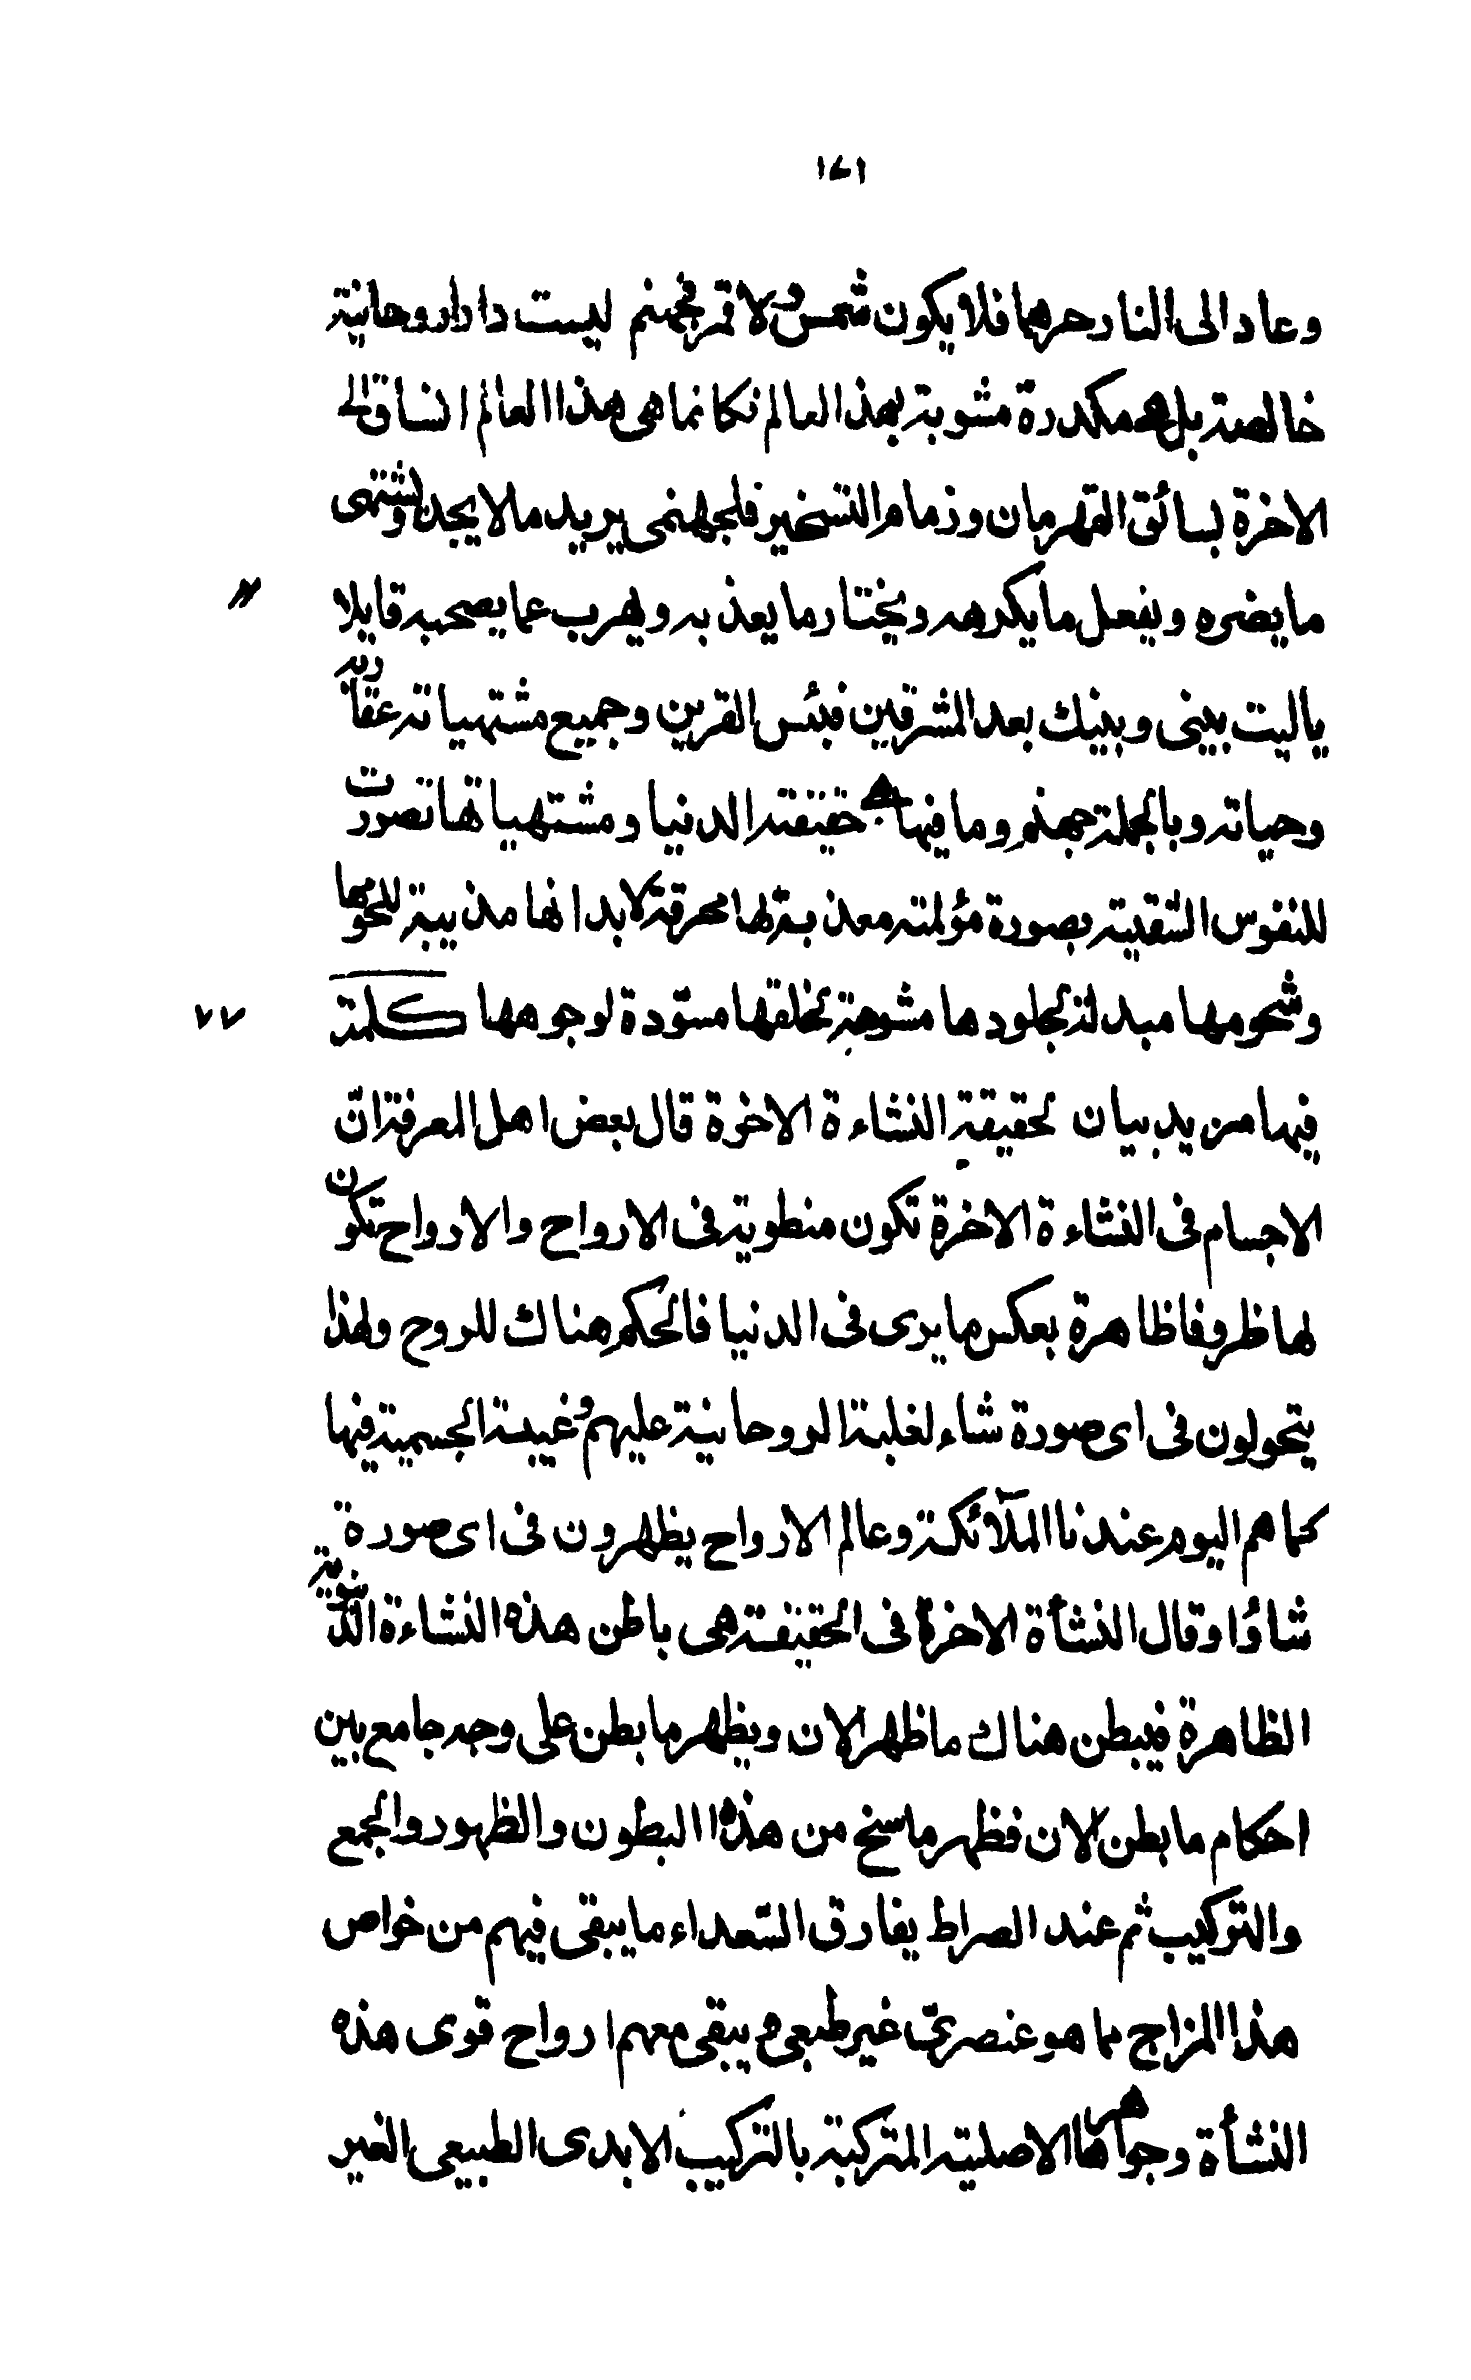 ١٧١
وعاد الى النار حرهما فلا يكون شمس ولا قمر فجهنم ليست دارا روحانية
خالصة بل هى مكدرة مشوبة بهذا العالم فكانما هى هذا العالم انساق الى
الاخرة بسائق القهرمان وزمام التسخير فلجهنمى يريد ما لا يجد ويشتهى
ما يضره ويفعل ما يكرهه ويختار ما يعذ به ويهرب عما يصحبه قايلا
ياليت بينى وبينك بعد المشرقين فبئس القرين وجميع مشتهياته عقاربه
وحياته وبالجملة جهنم وما فيها هى حقيقة الدنيا ومشتهياتها تصورت
للنفوس الشقية بصورة مؤلمة معذبة لها محرقة لابدانها مذيبة للحومها
وشحومها مبدلة لجلودها مشوهة لخلقها مسوّدة لوجوهها كلمة
٧٧
فيها مزيد بيان لحقيقة النشاءة الاخرة قال بعض اهل المعرفة انّ
الاجسام فى النشاءة الاخرة تكون منطوية فى الارواح والارواح تكون
لها ظروفا ظاهرة بعكس ما يرى فى الدنيا فالحكم هناك للروح ولهذا
يتحولون فى اى صورة شاء لغلبة الروحانية عليهم وغيبة الجسمية فيها
كما هم اليوم عندنا الملآئكة وعالم الارواح يظهرون فى اى صورة
شاؤا وقال النشأة الاخرة فى الحقيقة هى باطن هذه النشاءة الدّنيوية
الظاهرة فيبطن هناك ما ظهر الان ويظهر ما بطن على وجه جامع بين
احكام ما بطن الان فظهر ما سنح من هذه البطون والظهور والجمع
والتركيب ثم عند الصراط يفارق السّعداء ما يبقى فيهم من خواص
هذا المزاج مما هو عنصرىّ غير طبعى ويبقى معهم ارواح قوى هذه
النشأة وجواهرها الاصلية المتركبة بالتركيب الابدى الطبيعى الغير